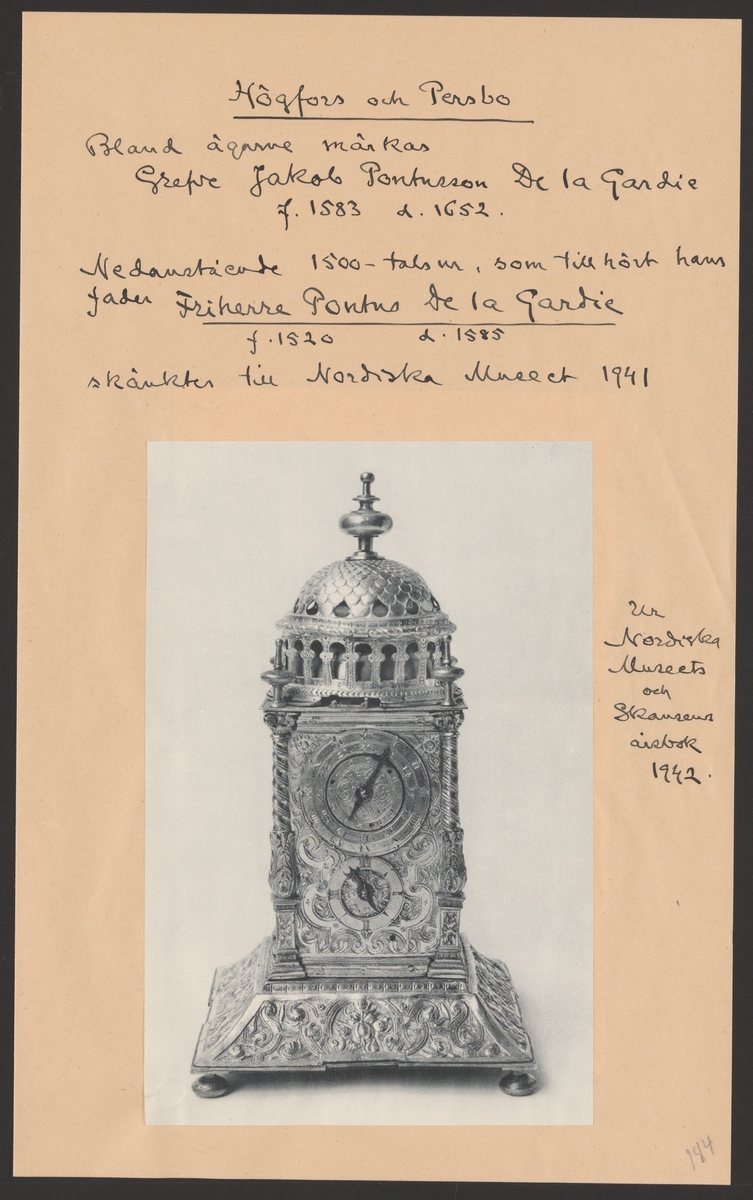 Högfors och Persbo
Bland ägarne märkas
Grefve Jakob Pontusson De la Gardie
f. 1583 d. 1652.
Nedanstående 1500-talsur, som tillhört hans
fader Friherre Pontus De la Gardie
f. 1520 d. 1585
skänktes till Nordiska Museet 1941
Ur
Nordiska
Museets
och
Skansens
årsbok
1942.
184